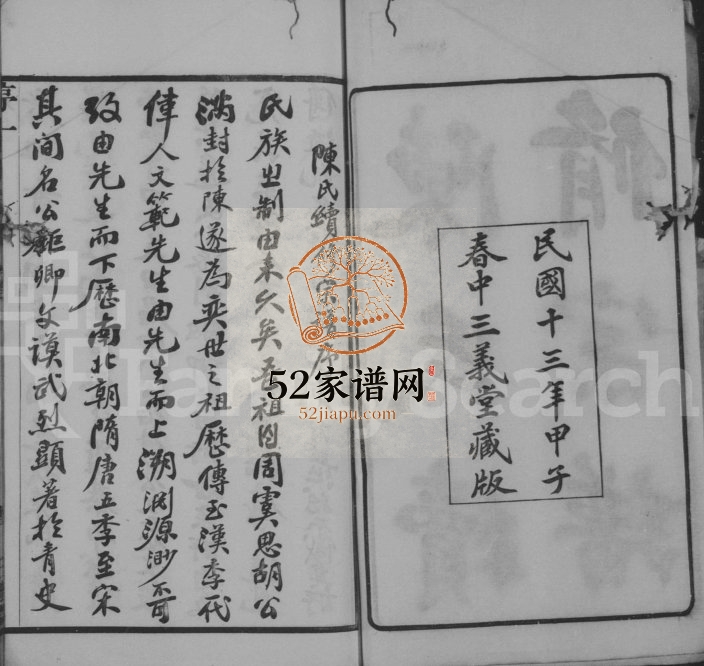 民國十三年甲子
春中三義堂藏版
陳氏續修宗譜序
民族之制由來久矣吾祖自周虞思胡公
滿封於陳遂為奕世之祖歷傳至漢季代
偉人文範先生由先生而上溯淵源渺不可
攷由先生而下歷南北朝隋唐五季至宋
其間名公鉅卿文謨武烈顯著於青史
序一
52家谱网
52jiapu.com